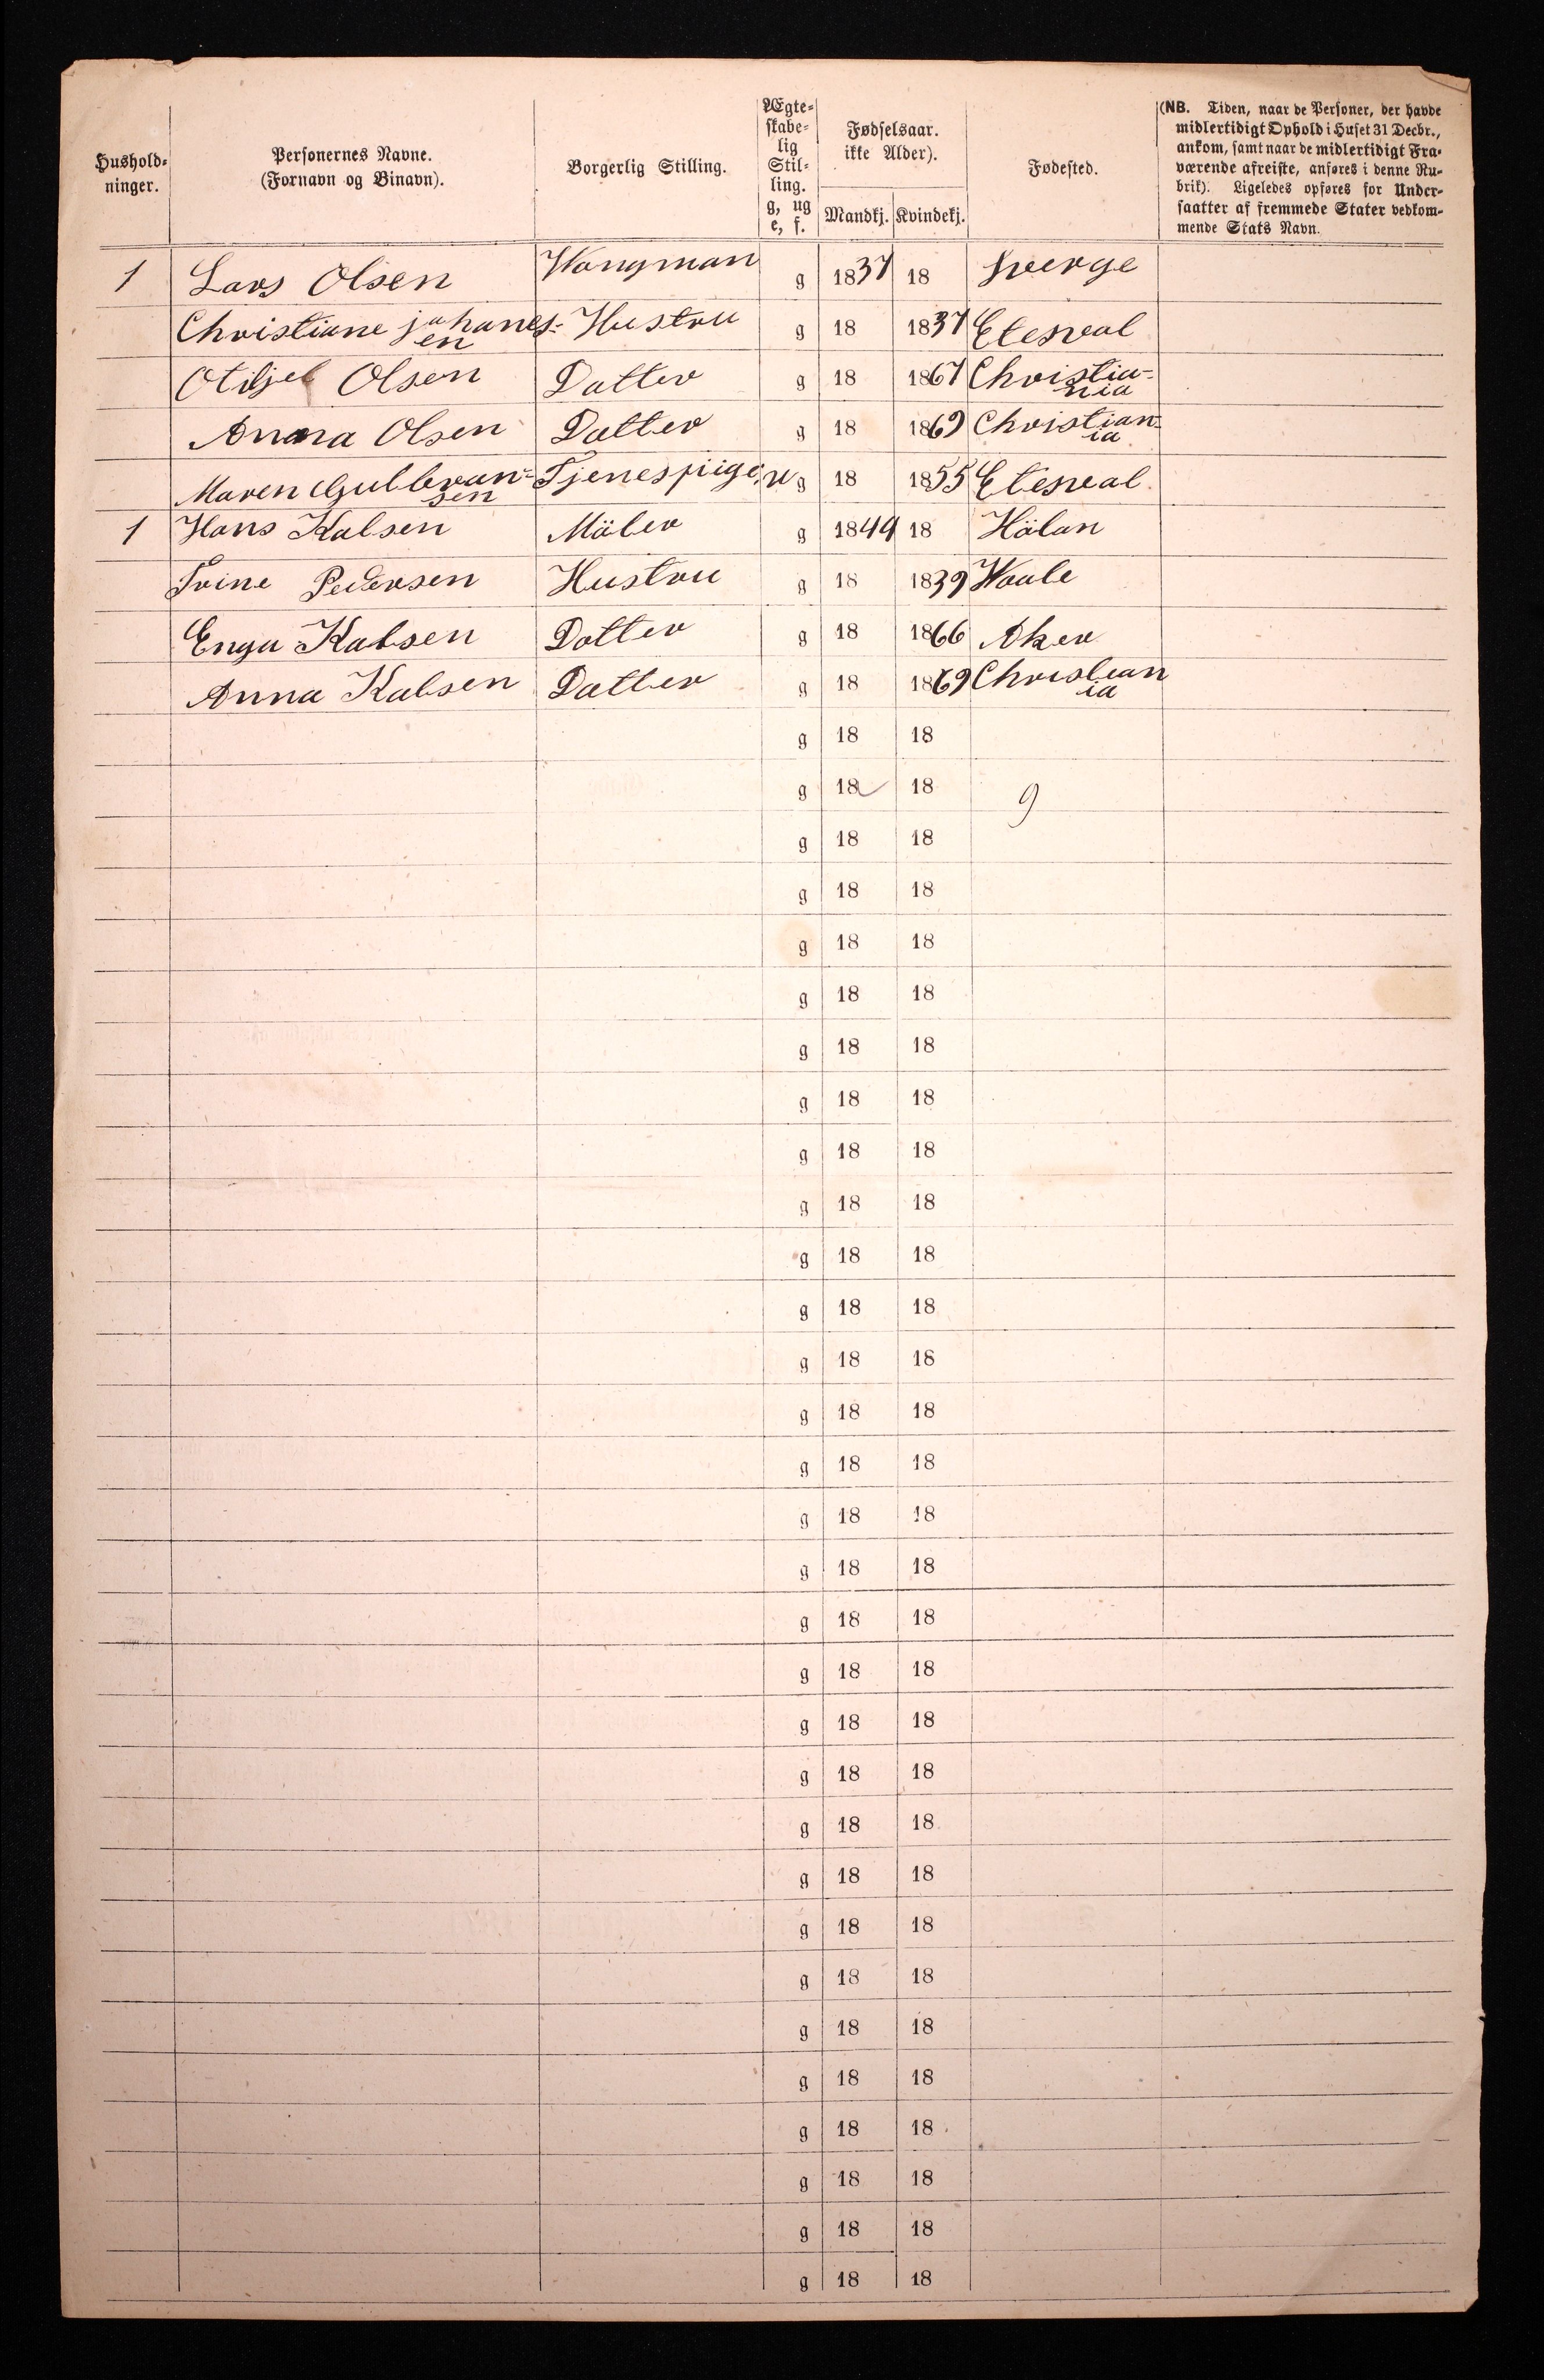 Hushold-
ninger.
Personernes Navne.
(Fornavn og Binavn).
Borgerlig Stilling.
Ægte-
skabe-
lig
Stil-
ling.
g, ug
e, f.
Fødselsaar.
ikke Alder).
Mandkj. Kvindekj.
Fødested.
(NB. Tiden, naar de Personer, der havde
midlertidigt Ophold i Huset 31 Decbr.,
ankom, samt naar de midlertidigt Fra-
værende afreiste, anføres i denne Ru-
brik). Ligeledes opføres for Under-
saatter af fremmede Stater vedkom-
mende Stats Navn.
1 Lars Olsen Wongman g 1837 18 Sverge
Christiane johanes- Hustru g 18 1837 Etesval
en
Otiljel Olsen Datter g 18 1867 Christia-
nia
Anna Olsen Datter g 18 1869 Christian-
ia
Maren Gulbran- Tjenespige u g 18 1855 Etesval
sen
1 Hans Kalsen Mäler g 1844 18 Hölan
Trine Pedersen Hustru g 18 1839 Waale
Enga Kalsen Dotter g 18 1866 Aker
Anna Kalsen Datter g 18 1869 Christian
ia
g 18 18
g 18 18 9
g 18 18
g 18 18
g 18 18
g 18 18
g 18 18
g 18 18
g 18 18
g 18 18
g 18 18
g 18 18
g 18 18
g 18 18
g 18 18
g 18 18
g 18 18
g 18 18
g 18 18
g 18 18
g 18 18
g 18 18
g 18 18
g 18 18
g 18 18
g 18 18
g 18 18
g 18 18
g 18 18
g 18 18
g 18 18